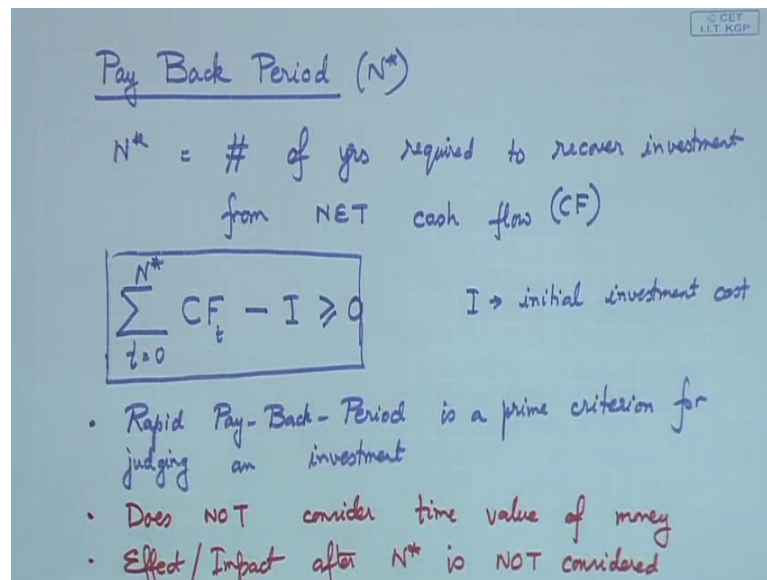 © CET
I.I.T. KGP
Pay Back Period (N*)
N* = # of yrs required to recover investment
from NET cash flow (CF)
N*
∑ CF_t - I ⩾ 0
t=0
I → initial investment cost
• Rapid Pay-Back-Period is a prime criterion for
judging an investment
• Does NOT consider time value of money
• Effect/Impact after N* is NOT considered